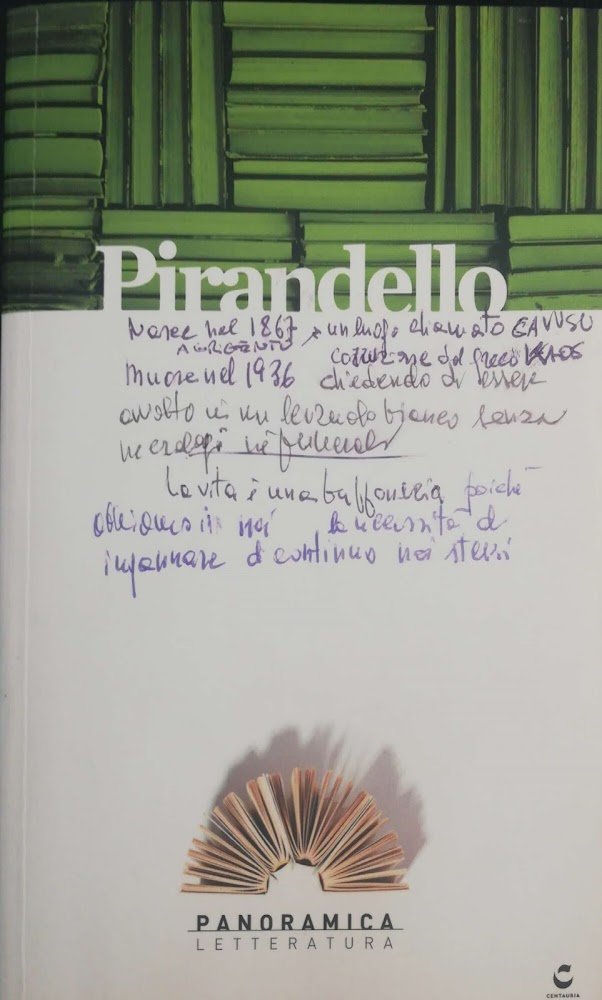 Pirandello
Nasce nel 1867, in un luogo chiamato CAVUSU
AGRIGENTO
corruzione del greco KAOS
Muore nel 1936 chiedendo di essere
avvolto in un lenzuolo bianco senza
necrologi né funerali
La vita è una buffoneria poiché
abbiamo in noi la necessità di
ingannare di continuo noi stessi
PANORAMICA
LETTERATURA
CENTAURIA